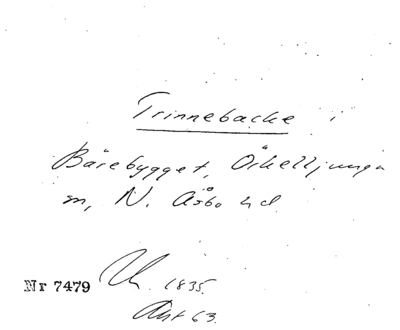 Trinnebacke i
Bärebygget, Örkelljunga
m, N. Åsbo hd
Nr 7479 1835.
Akt 63.